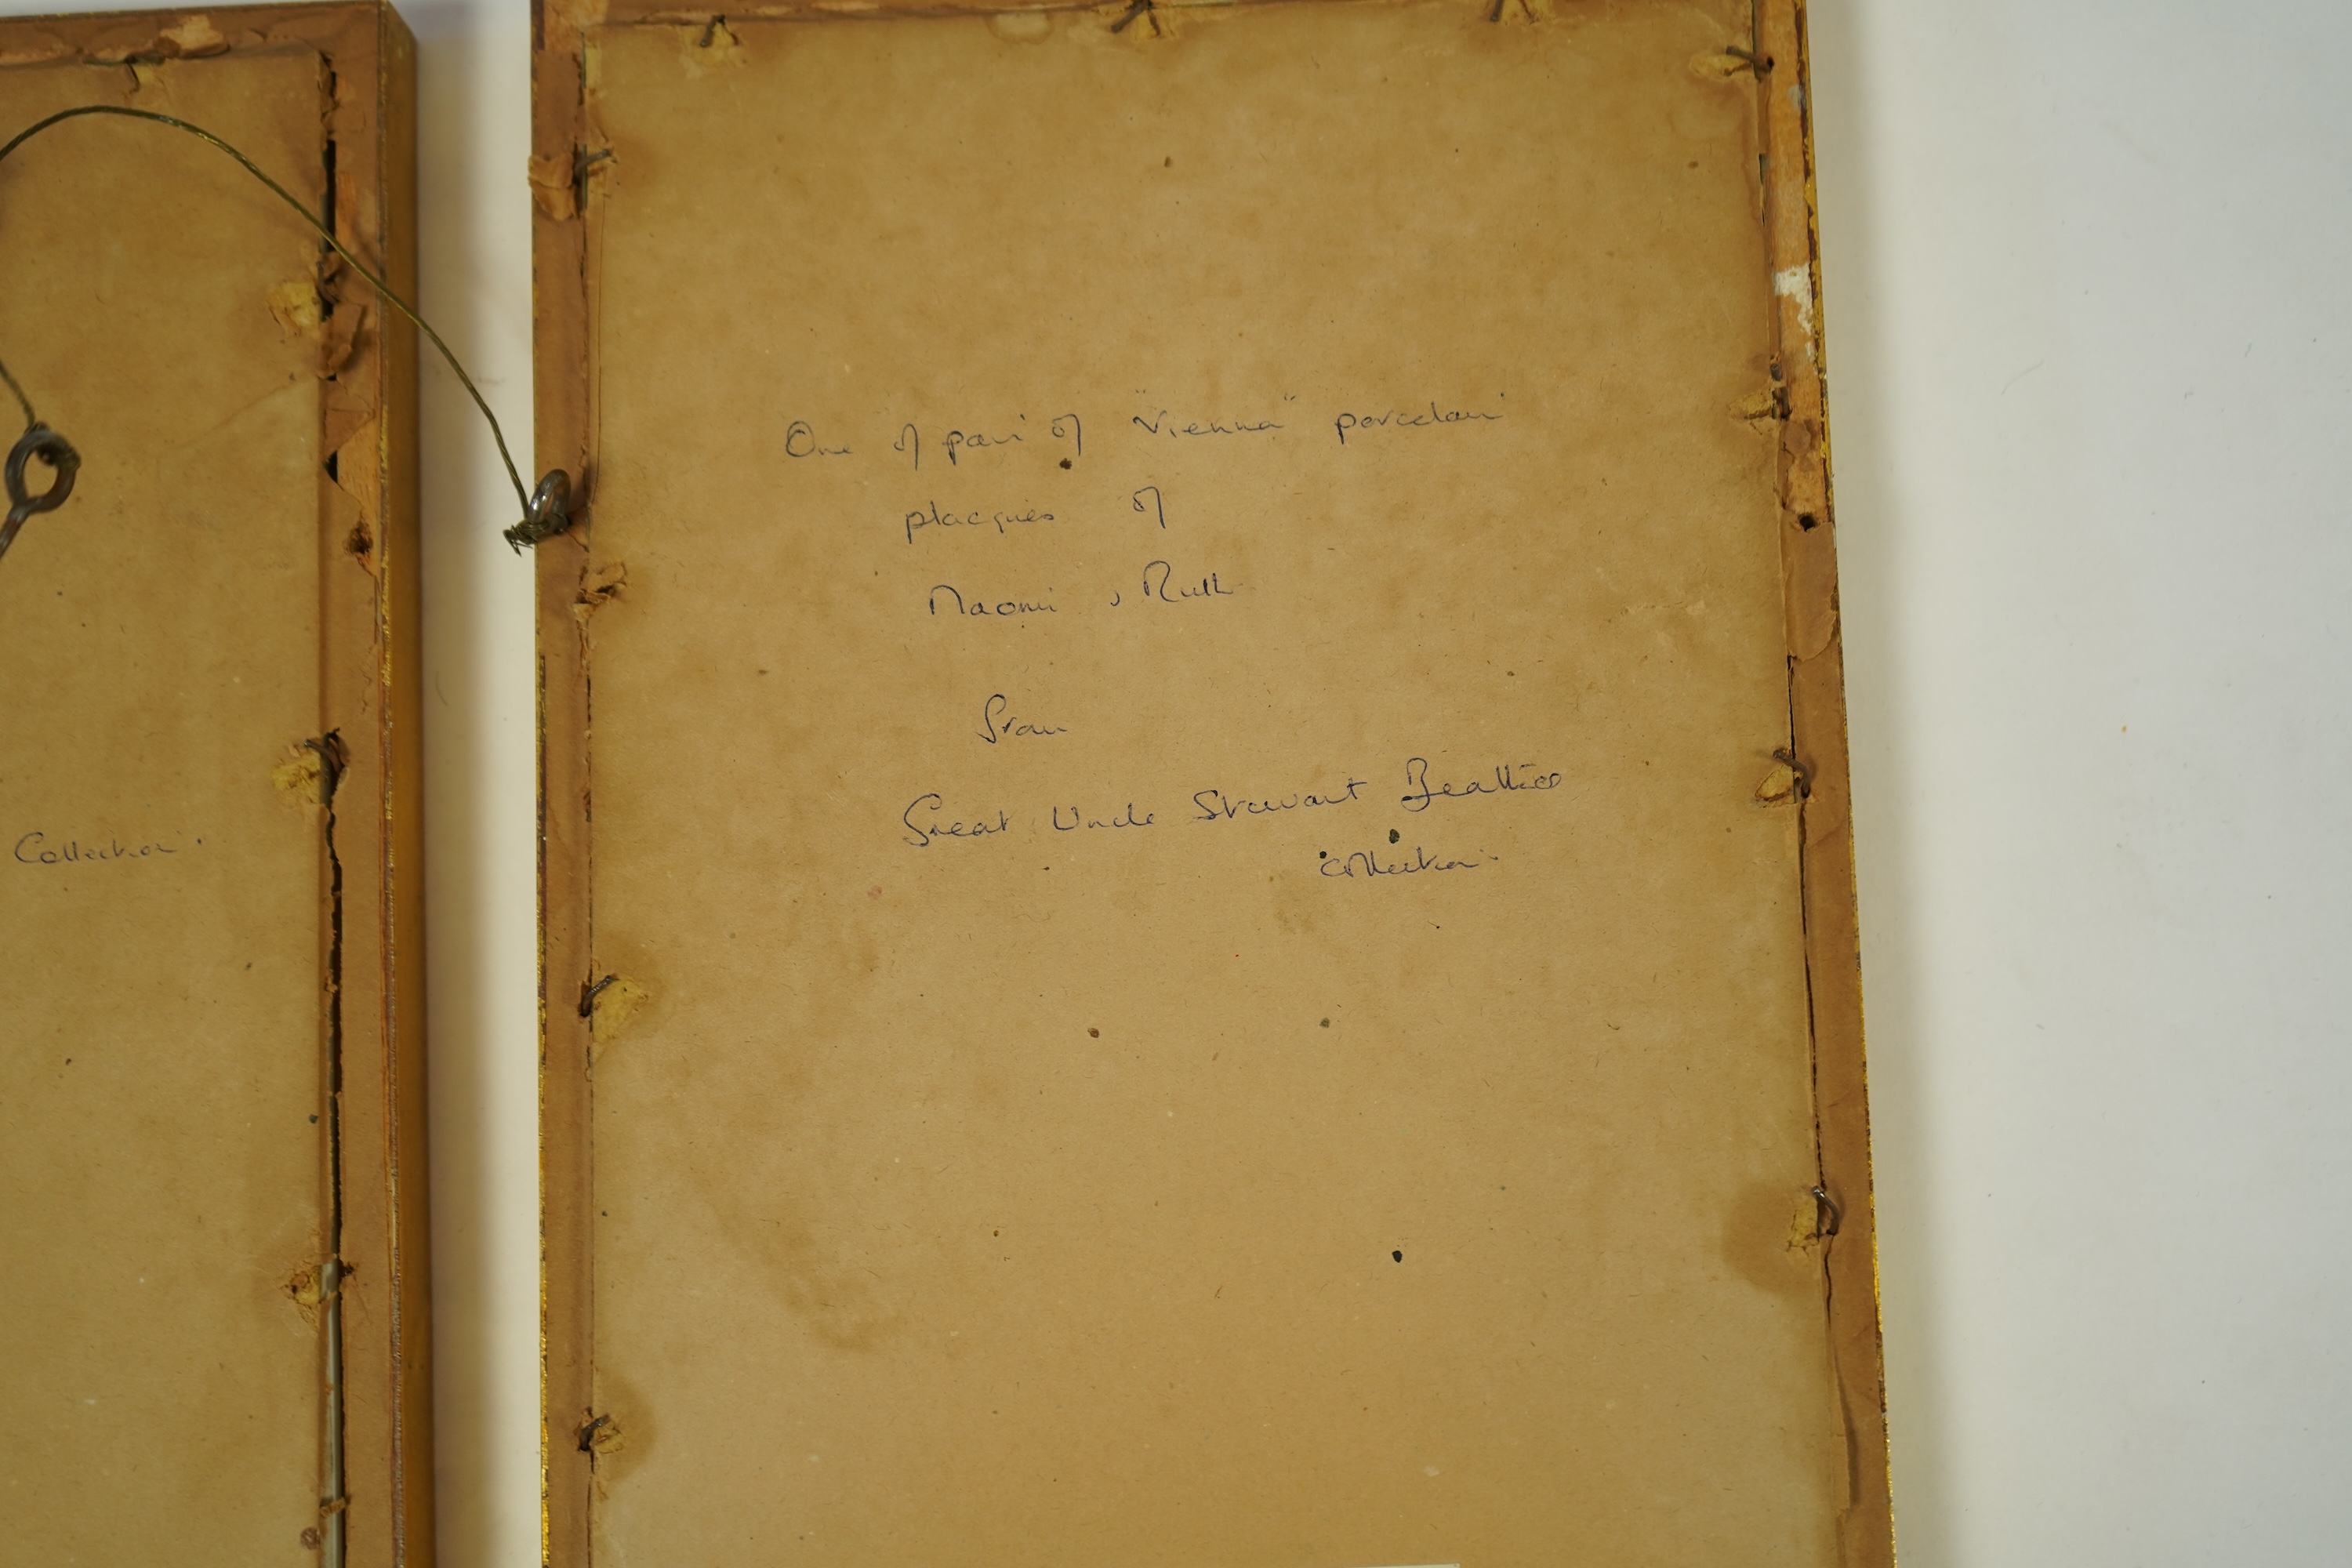 Collection.
One of pair of "Vienna" porcelain
placques of
Naomi , Ruth
From
Great Uncle Stewart Beattie
collection.